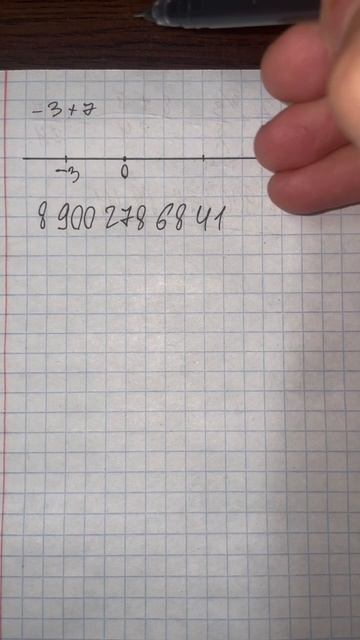 -3+7
-3 0
8 900 278 68 41